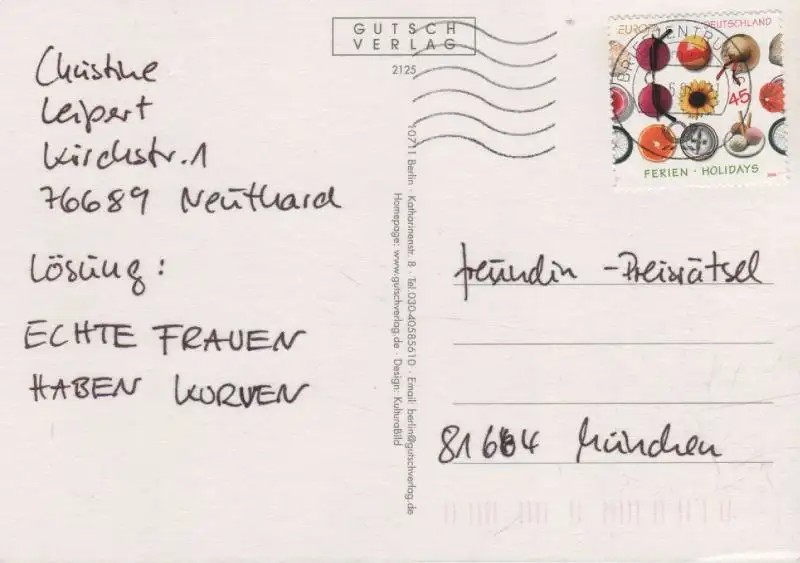 GUTSCH
VERLAG
2125
Christine
Leipert
Kirchstr. 1
76689 Neuthard
Lösung:
ECHTE FRAUEN
HABEN KURVEN
10711 Berlin · Katharinenstr. 8 · Tel.030-40585610 · Email: berlin@gutschverlag.de
Homepage: www.gutschverlag.de · Design: KulturaBild
EUROPA DEUTSCHLAND
45
FERIEN · HOLIDAYS
BRIEFZENTRUM
freundin - Preisrätsel
81664 München